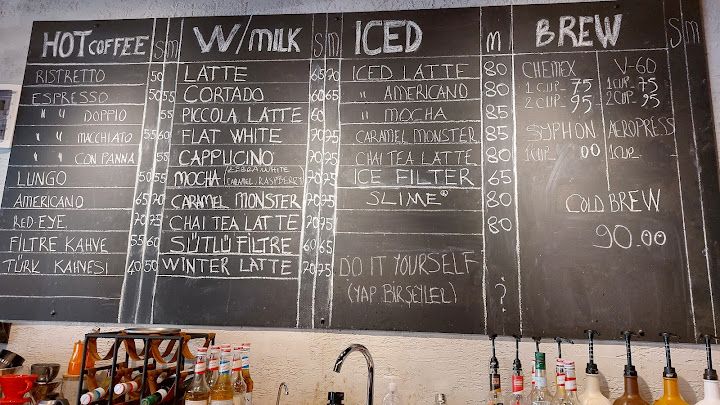 HOT COFFEE S M
RISTRETTO 50
ESPRESSO 50 55
" " DOPPIO 55
" " MACCHIATO 55 60
" " CON PANNA 55
LUNGO 50 55
AMERICANO 65 70
RED EYE 70 75
FILTRE KAHVE 55 60
TÜRK KAHVESİ 40 50
W/MILK S M
LATTE 65 70
CORTADO 60 65
PICCOLA LATTE 60
FLAT WHITE 70 75
CAPPUCINO 70 75
MOCHA / ZEBRA WHITE CARAMEL RASPBERRY 70 75
CARAMEL MONSTER 70 75
CHAI TEA LATTE 70 75
SÜTLÜ FİLTRE 60 65
WINTER LATTE 70 75
ICED M
ICED LATTE 80
" AMERICANO 80
" MOCHA 85
CARAMEL MONSTER 85
CHAI TEA LATTE 80
ICE FILTER 65
SLIME 80
80
DO IT YOURSELF
(YAP BİRŞEYLER) ?
BREW S M
CHEMEX
1 CUP 75
2 CUP 95
V-60
1 CUP 75
2 CUP 95
SYPHON
1 CUP 00
AEROPRESS
1 CUP
COLD BREW
90.00